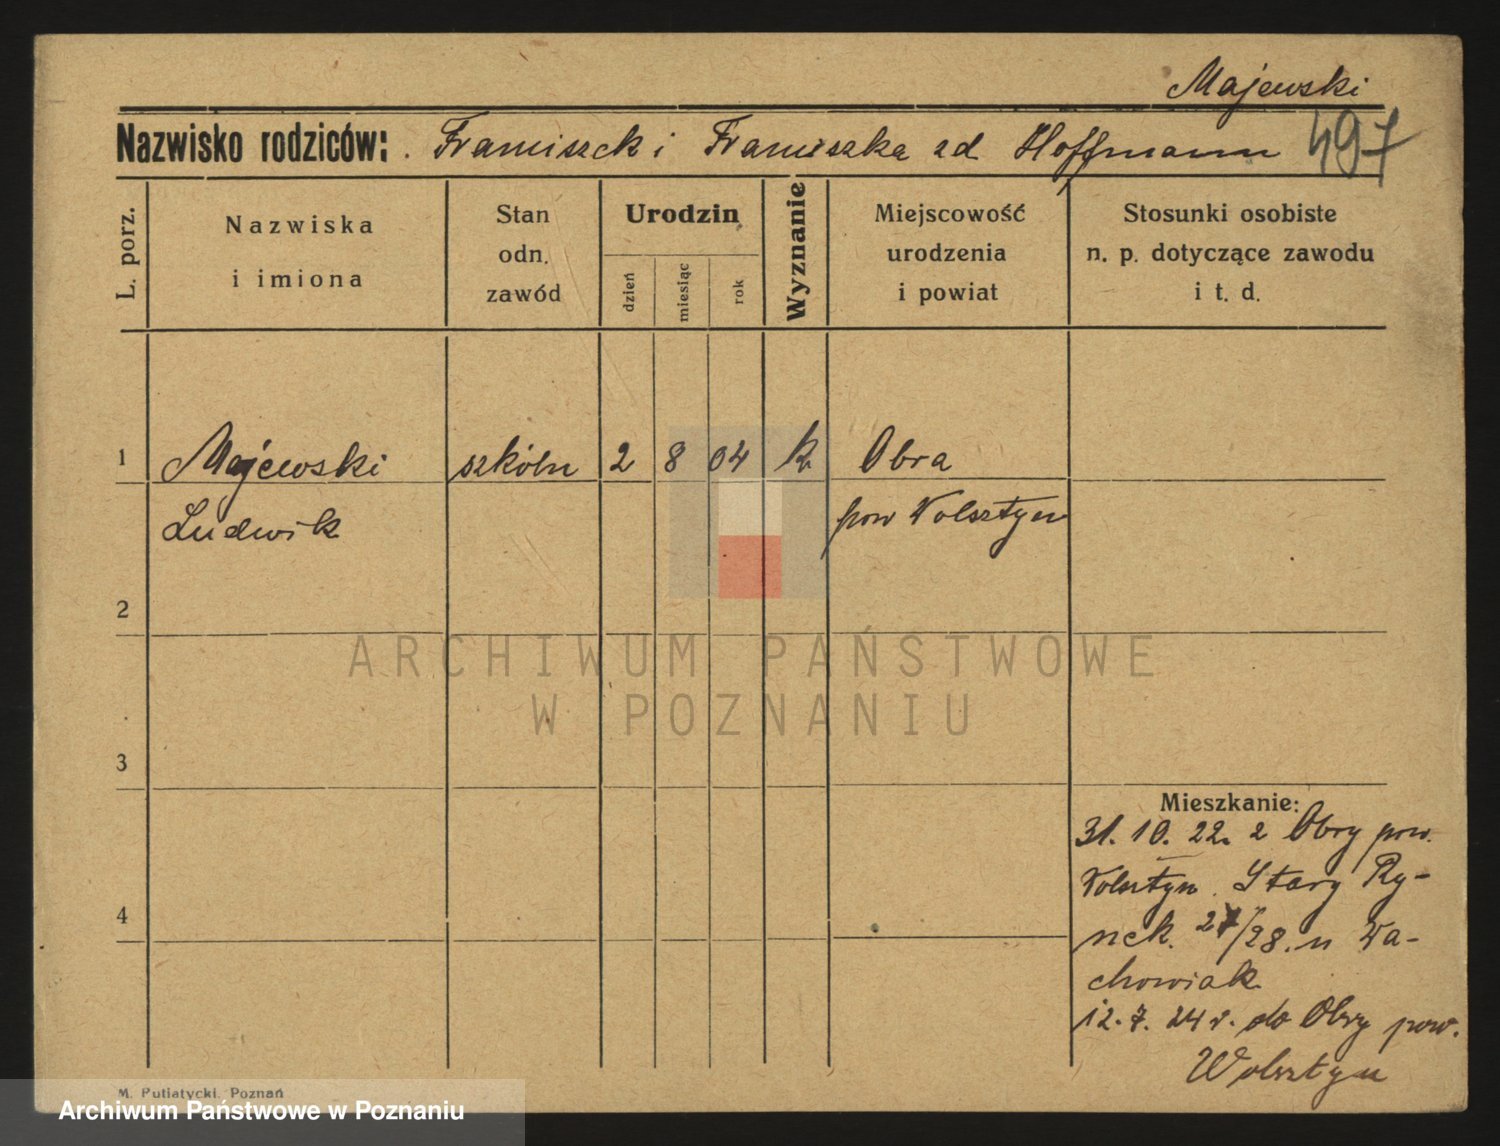 Majewski
Nazwisko rodziców: Franciszek i Franciszka zd Hoffmann 497
L. porz.
Nazwiska
i imiona
Stan
odn.
zawód
Urodzin
dzień
miesiąc
rok
Wyznanie
Miejscowość
urodzenia
i powiat
Stosunki osobiste
n. p. dotyczące zawodu
i t. d.
1 Majewski szkóln 2 8 04 k Obra
Ludwik pow Wolsztyn
2
ARCHIWUM PAŃSTWOWE
W POZNANIU
3
Mieszkanie:
31. 10. 22. z Obry pow.
Wolsztyn. Stary Ry-
4
nek. 27/28. u Wa-
chowiak
12. 7. 24 r. do Obry pow.
Wolsztyn
M. Putiatycki, Poznań
Archiwum Państwowe w Poznaniu